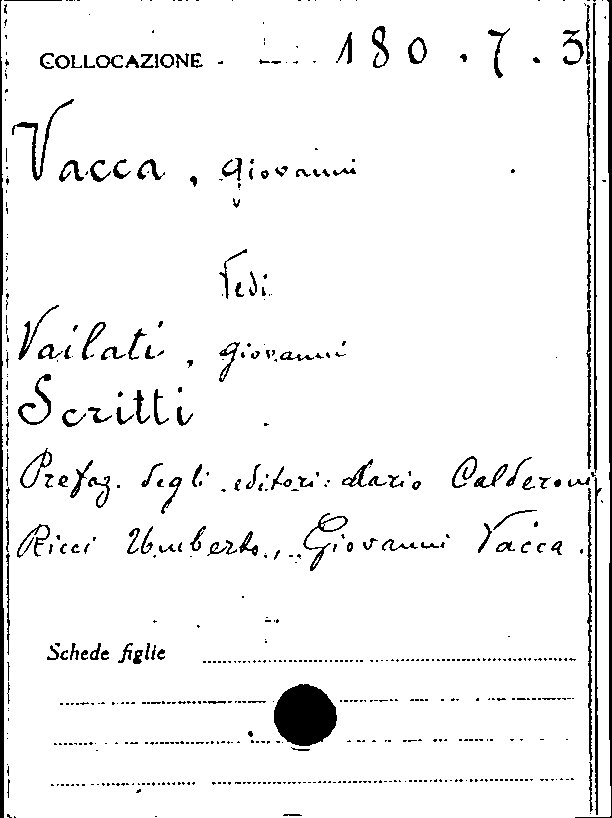 COLLOCAZIONE 180.7.3
Vacca, Giovanni
Vedi
Vailati, Giovanni
Scritti
Prefaz. degli editori: Mario Calderoni,
Ricci Umberto, Giovanni Vacca.
Schede figlie